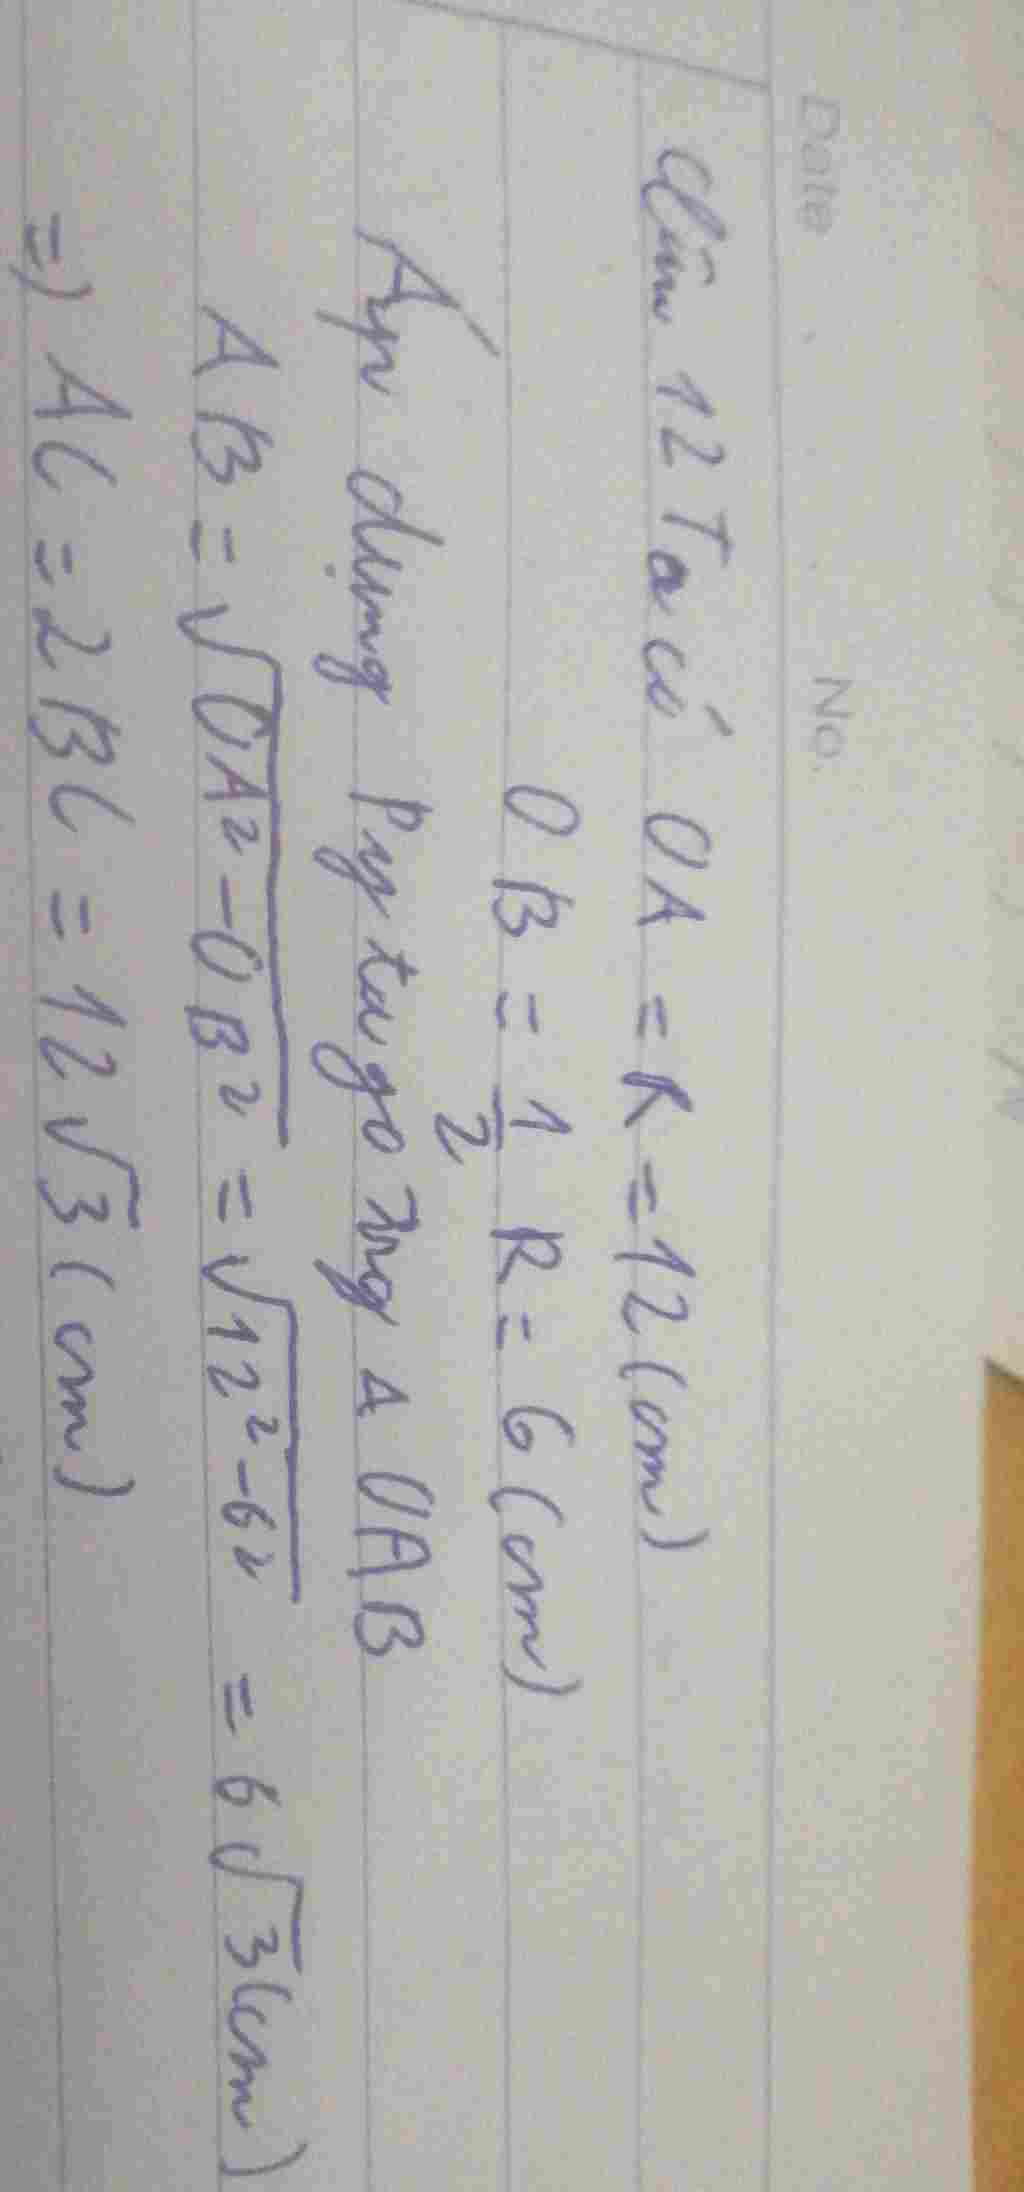 Date No.
Câu 12 Ta có OA = R = 12 (cm)
OB = 1/2 R = 6 (cm)
Áp dụng Pytago trg Δ OAB
AB = √(OA² - OB²) = √(12² - 6²) = 6√3 (cm)
=) AC = 2BC = 12√3 (cm)